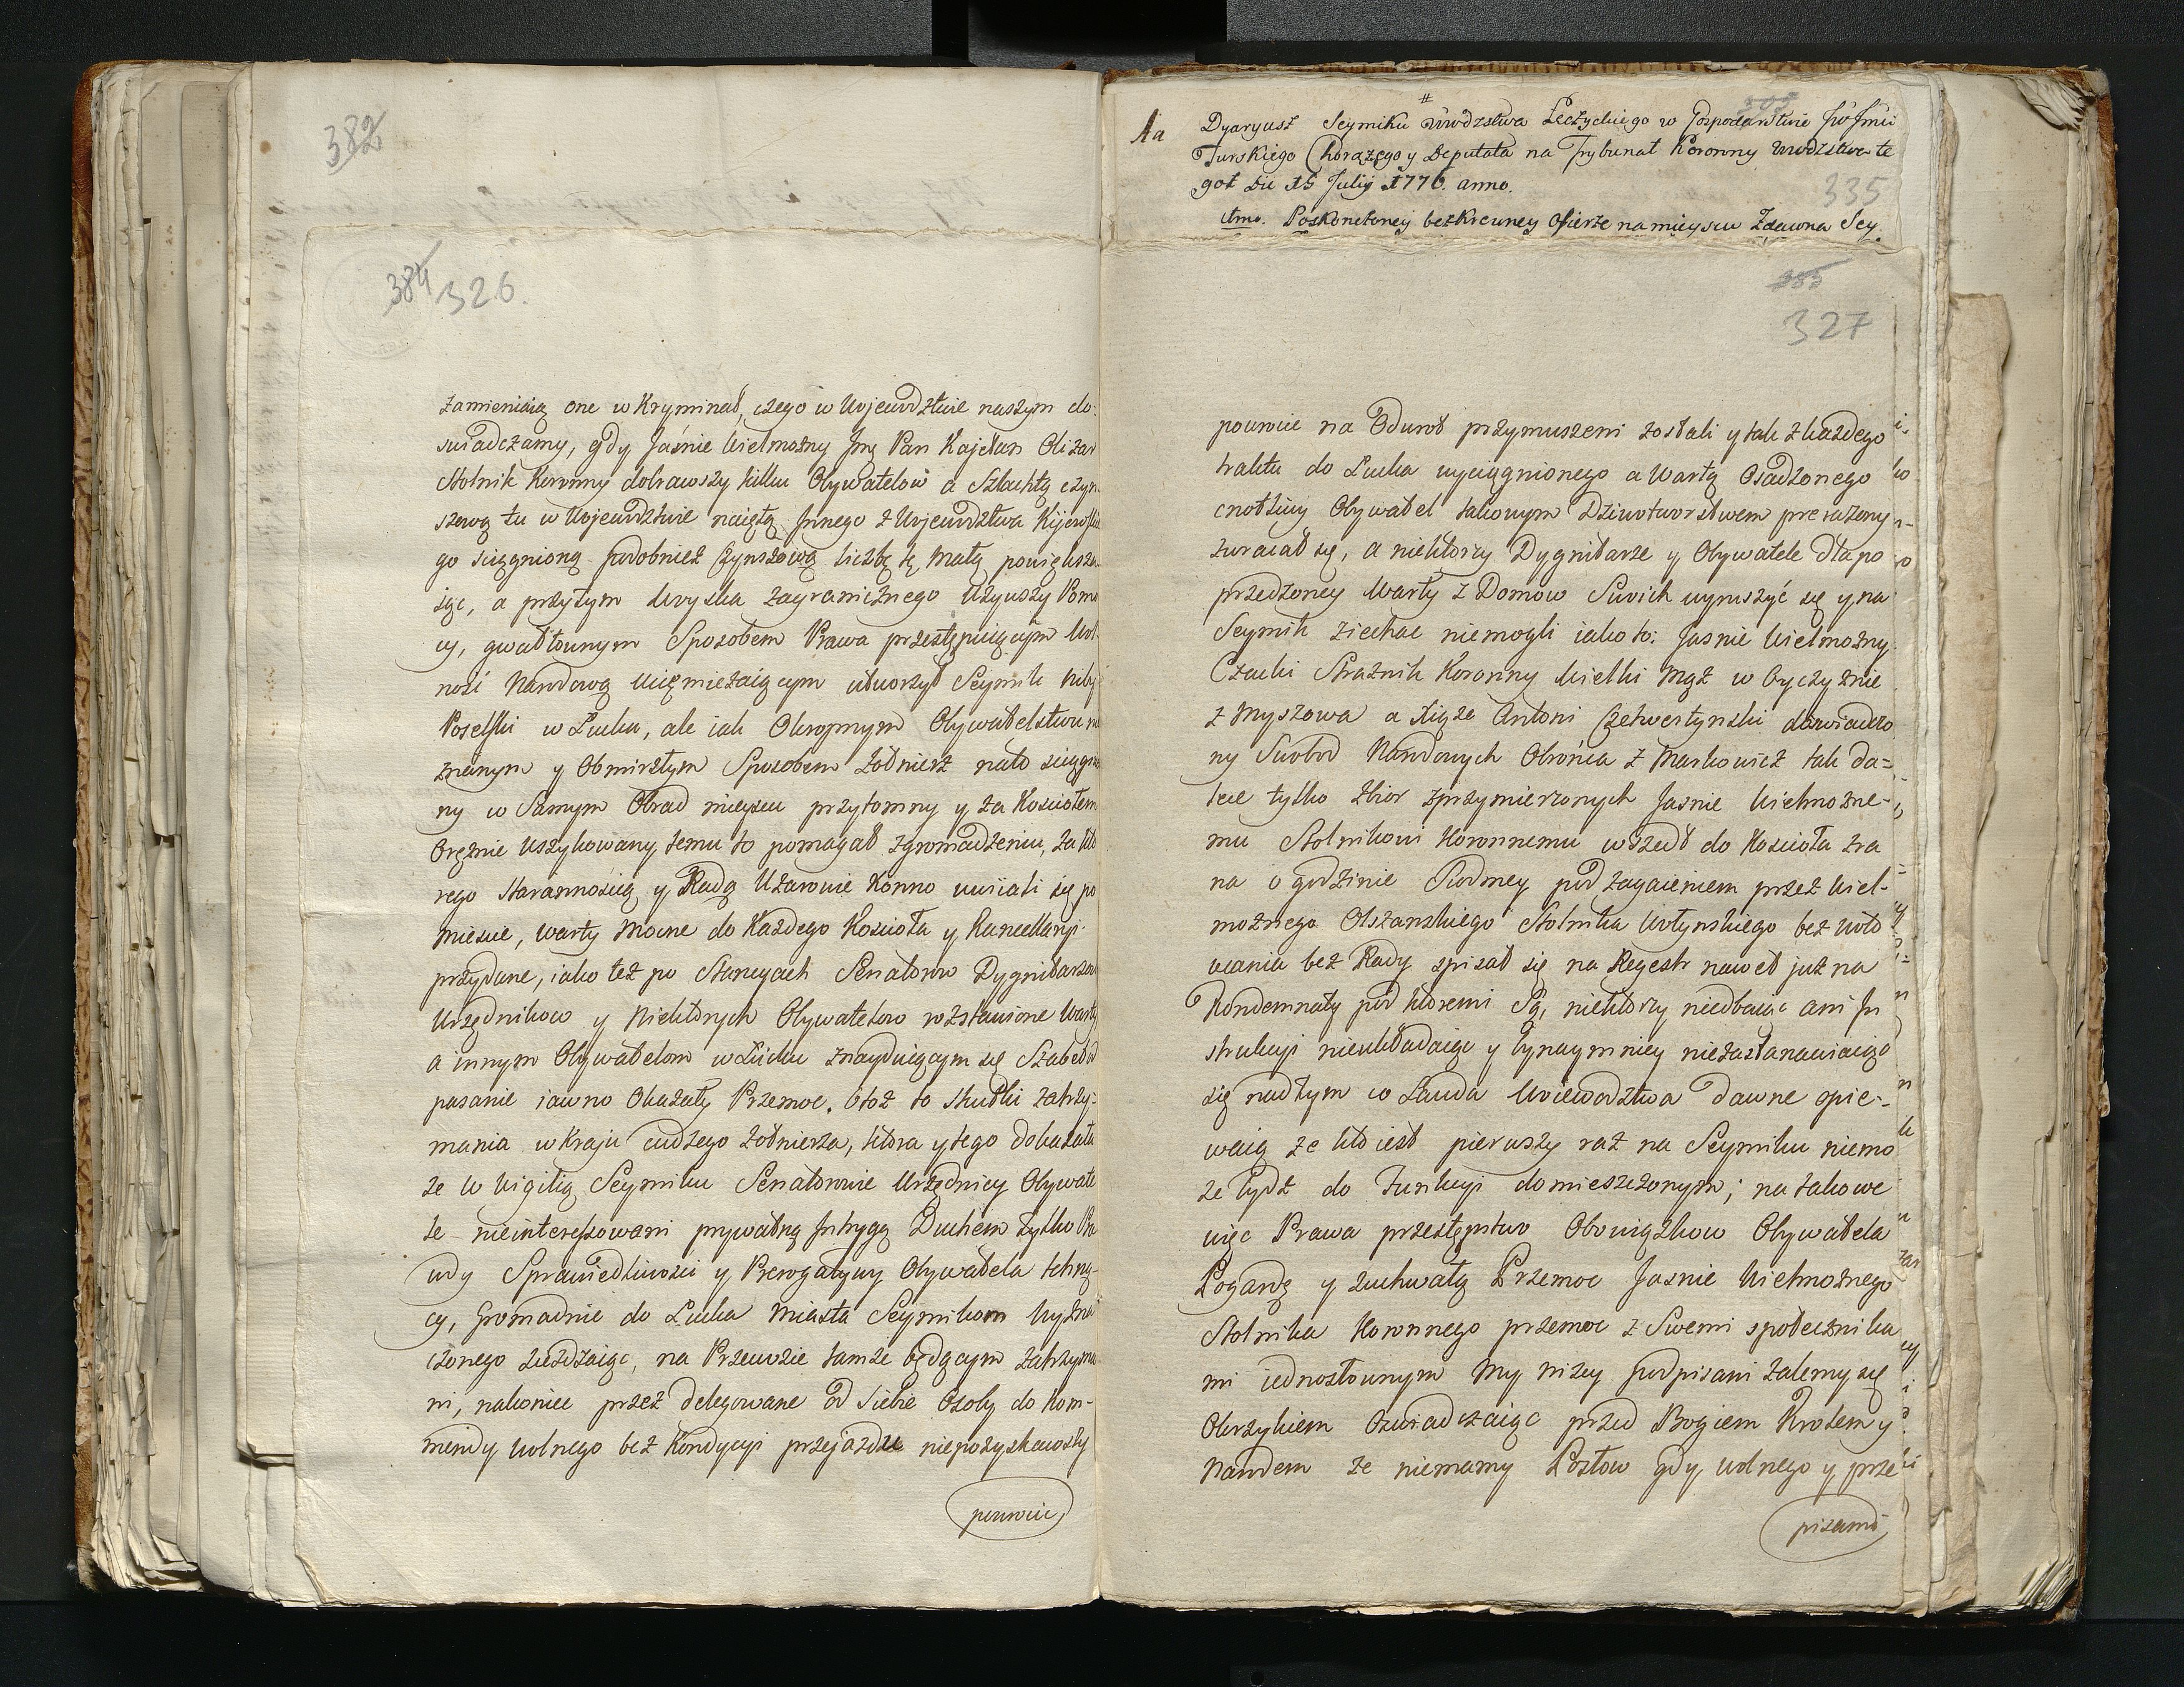 382
384 326.
zamieniaią one w Kryminał, czego w Wojewodztwie naszym do:
swiadczamy, gdy Jaśnie Wielmożny Jmć Pan Kajetan Olizar
Stolnik Koronny dobrawszy kilku Obywatelow a Szlachtą czyn
szową tu w Wojewodztwie naiętą Innego z Wojewodztwa Kijowskie
go sciągnioną podobnież Czynszową liczbę tę małą powiększa
iąc, a przytym Woyska zagranicznego Użyuszy Pomo
cy, gwałtownym Sposobem Prawa przestępuiącym Wol
ność Narodową Uciemiężaiącym utworzył Seymik niby
Poselski w Łucku, ale iak Okropnym Obywatelstwu nie
znanym y Obmirzłym Sposobem Żołnierz nato sciągnio
ny w Samym Obrad mieyscu przytomny y za Kosciołem
Orężnie Uszykowany temu to pomagał zgromadzeniu, za kto
rego Starannością y Radą Ułanowie Konno uwiiali się po
Miescie, warty Mocne do Każdego Kościoła y Kancellaryi
przydane, iako też po Stancyach Senatorow Dygnitarzow
Urzędnikow y Niektorych Obywatelow rozstawione Warty
a innym Obywatelom w Łucku znayduiącym się Szabel od
pasanie iawno Okazały Przemoc. Otoż to Skutki zatrzy:
mania w Kraju cudzego żołnierza, ktora y tego dokazała
że w Wigilią Seymiku Senatorowie Urzędnicy Obywate
le nieinteressowani prywatną Intrygą Duchem tylko Pra
wdy Sprawiedliwości y Prerogatywy Obywatela tchną-
cy, gromadnie do Łucka Miasta Seymikom Wyzna
czonego zieżdzaiąc, na Przewozie tamże będącym zatrzyma
ni, nakoniec przez delegowane od Siebie Osoby do Kom-
mendy wolnego bez Kondycyi przejazdu niepozyskawszy
powrocie
Aa
Dyaryusz Seymiku Wwdztwa Łęczyckiego w Gospodarstwie
Turskiego Chorążego y Deputata na Trybunał Koronny Wwdztwa te
goż Die 15 Julij 1776. anno.
335
1mo. Poskonczoney bezkrewney Ofierze na mieyscu Zdawna Sey
327
powrocie na Odwrot przymuszeni zostali y tak z każdego
traktu do Łucka wyciągnionego a Wartą Osadzonego
cnotliwy Obywatel takowym Dziwotworstwem przerażony
zwracał się, a niektorzy Dygnitarze y Obywatele dla po
przedzoney Warty z Domow Swoich wyruszyć się y na
Seymik ziechac niemogli iako to: Jasnie Wielmożny
Czacki Strażnik Koronny Wielki Mąż w Oyczyznie
z Myszowa a Xiąże Antoni Czetwertynski doswiadczo
ny Swobod Narodowych Obrońca z Markowicz tak da=
lece tylko zbior zprzymierzonych Jasnie Wielmożne-
mu Stolnikowi Koronnemu wszedł do Kościoła zra
na o godzinie Siodmey pod zagaieniem przez Wiel-
możnego Olszanskiego Stolnika Wołynskiego bez woto
wania bez Rady spisał się na Regestr nawet już na
Kondemnaty pod ktoremi Są, niektorzy niedbaiąc ani In
strukcyi nieukładaiąc y bynaymniey niezastanawiaiąc
się nad tym co Lauda Woiewodztwa dawne opie-
waią ze kto iest pierwszy raz na Seymiku niemo
że bydz do Funkcyi domieszczonym; na takowe
więc Prawa przestępstwo Obowiązkow Obywatela
Pogardę y zuchwałą Przemoc Jasnie Wielmożnego
Stolnika Koronnego przemoc z Swemi społecznika
mi iednosłownym My niżey podpisani żalemy się
Okrzykiem Oswiadczaiąc przed Bogiem Krolem y
Narodem że niemamy Posłow gdy wolnego y prze
pisami